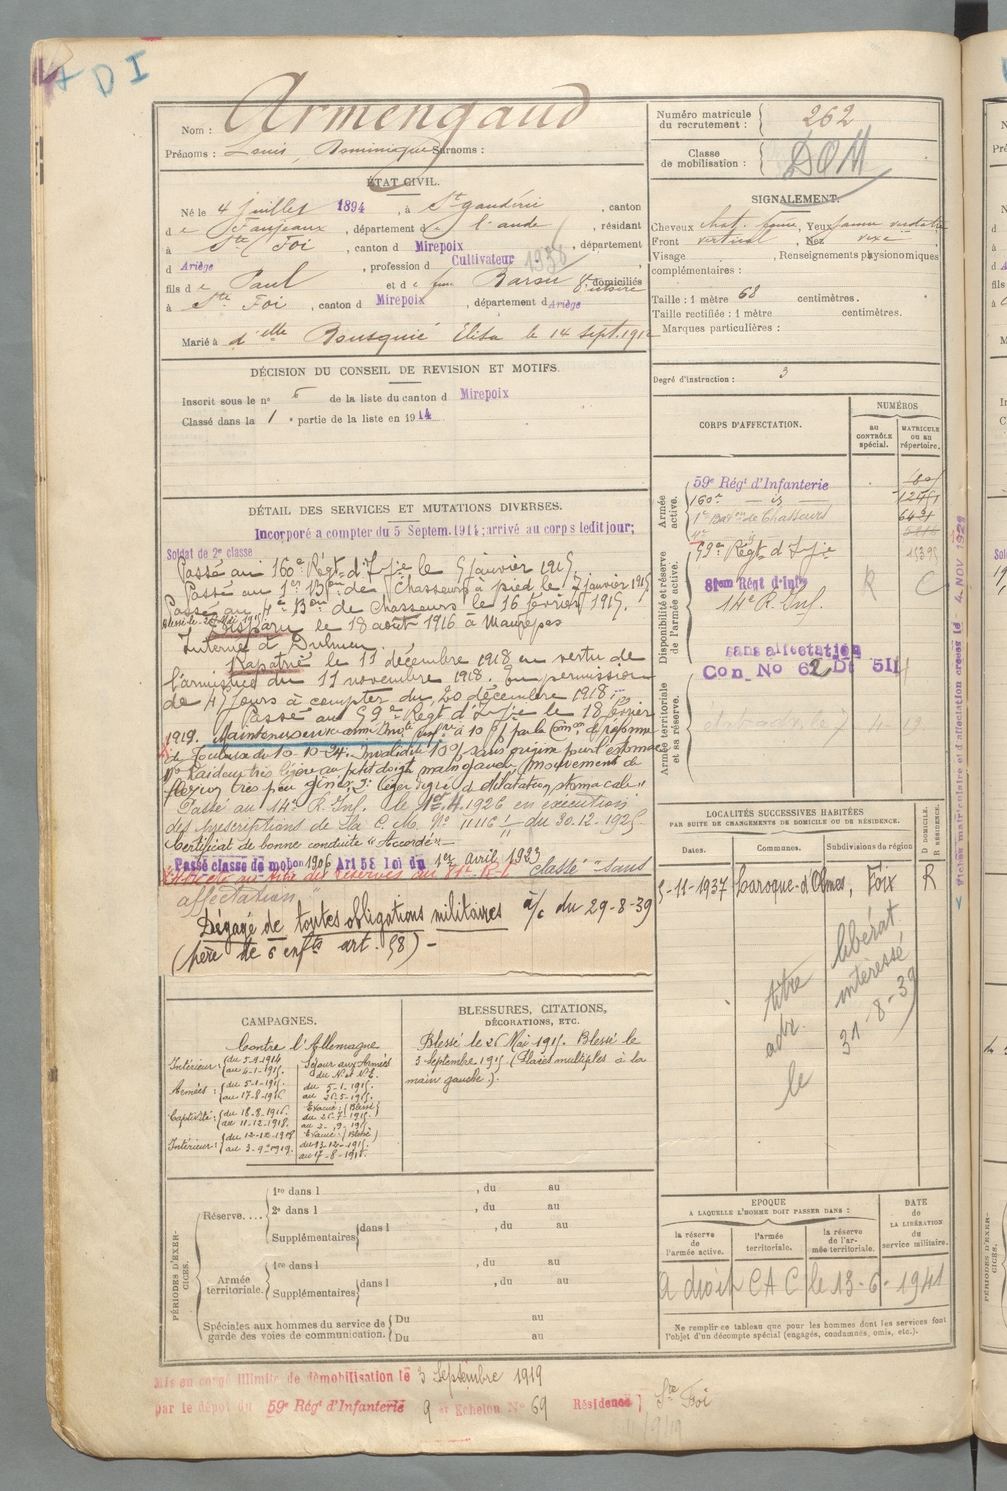 A D I
Nom : Armengaud
Prénoms : Louis, Dominique Surnoms :
Numéro matricule du recrutement : 262
Classe de mobilisation : DOM
ÉTAT CIVIL.
Né le 4 juillet 1894, à St gaudéric, canton
de Fanjeaux, département de l'aude, résidant
à Ste Foi, canton d Mirepoix, département
d Ariège, profession d Cultivateur 1938
fils de Paul et de feue Barou domiciliés
à Ste Foi, canton d Mirepoix, département d Ariège
Marié à d'elle Bousquié Elisa le 14 Sept. 191
SIGNALEMENT.
Cheveux chat. foncé, Yeux jaune verdâtre
Front vertical, Nez vexe,
Visage , Renseignements physionomiques
complémentaires :
Taille : 1 mètre 68 centimètres.
Taille rectifiée : 1 mètre centimètres.
Marques particulières :
Degré d'instruction : 3
DÉCISION DU CONSEIL DE REVISION ET MOTIFS.
Inscrit sous le no 6 de la liste du canton d Mirepoix
Classé dans la 1e partie de la liste en 1914
CORPS D'AFFECTATION.
NUMÉROS
au CONTRÔLE spécial.
MATRICULE ou au répertoire.
Armée active.
59e Régt d'Infanterie
160e — is —
1er Baton de Chasseurs
4e is
Disponibilité et réserve de l'armée active.
59e Régt d'Infie
81em Régt d'Infie
14e R. Inf.
R C
sans affectation
Con. No 62 Dt 511
Armée territoriale et sa réserve.
DÉTAIL DES SERVICES ET MUTATIONS DIVERSES.
Incorporé a compter du 5 Septem. 1914; arrivé au corps ledit jour;
Soldat de 2e classe
Passé au 160e Régt d'Infie le 5 janvier 1915.
Passé au 1er Bon de Chasseurs à pied le 7 janvier 1915
Passé au 4e Bon de Chasseurs le 16 février 1915.
Blessé le 26 Mai 1915
Disparu le 18 août 1916 à Maurepas
Interné à Dulmen.
Rapatrié le 11 décembre 1918 en vertu de
l'armistice du 11 novembre 1918. En permission
de 47 jours à compter du 20 décembre 1918.
Passé au 59e Régt d'Infie le 18 février
1919. Maintenu service armé Invté à 10 % par la Comon de réforme
de Toulouse du 10-10-24. Invalidité 10% sans origine pour l'estomac
1o Raideur très légère au petit doigt main gauche, mouvement de
flexion très peu gênés, 2o léger degré de dilatation stomacale"
Passé au 14e R. Inf. le 1er.4.1926 en exécution
des prescriptions de la C. M. No 11116 du 30.12.1925
Certificat de bonne conduite "Accordé"
Passé classe de mobon 1906 Art 58 loi du 1er avril 1923
classé "sans
affectation"
Dégagé de toutes obligations militaires à/c du 29-8-39
(père de 6 enfts art. 58) -
LOCALITÉS SUCCESSIVES HABITÉES
PAR SUITE DE CHANGEMENTS DE DOMICILE OU DE RÉSIDENCE.
Dates. Communes. Subdivisions de région D DOMICILE. R RÉSIDENCE.
5-11-1937 Laroque-d'Olmes, Foix R
titre libérat
adr. intéressé
le 31-8-39
Fiches matriculaire et d'affectation créées le 4 NOV 1929
CAMPAGNES.
Contre l'Allemagne
Intérieur : du 5-9-1914
au 4-1-1915.
Armées : du 5-1-1915.
au 17-8-1916.
Captivité : du 18-8-1916.
au 11-12-1918.
Intérieur : du 12-12-1918
au 3-9-1919.
Séjour aux Armées
du N et N.E.
du 5-1-1915.
au 26-5-1915.
Évacué : (Blessé)
du 26-7-1915.
au 2-9-1915.
Évacué : (Blessé)
du 13-12-1915.
au 17-8-1916.
BLESSURES, CITATIONS, DÉCORATIONS, ETC.
Blessé le 26 Mai 1915. Blessé le
3 Septembre 1915 (Plaies multiples à la
main gauche.).
PÉRIODES D'EXERCICES.
Réserve....
1re dans l , du au
2e dans l , du au
Supplémentaires dans l , du au
Armée territoriale.
1re dans l , du au
Supplémentaires dans l , du au
Spéciales aux hommes du service de garde des voies de communication.
Du au
Du au
EPOQUE
A LAQUELLE L'HOMME DOIT PASSER DANS :
la réserve de l'armée active.
l'armée territoriale.
la réserve de l'armée territoriale.
DATE de LA LIBÉRATION du service militaire.
A droit C A C le 13-6-1941
Ne remplir ce tableau que pour les hommes dont les services font
l'objet d'un décompte spécial (engagés, condamnés, omis, etc.).
Mis en congé illimité de démobilisation le 3 Septembre 1919
par le dépot du 59e Régt d'Infanterie 9 et Echelon No 69 Résidence Ste Foi